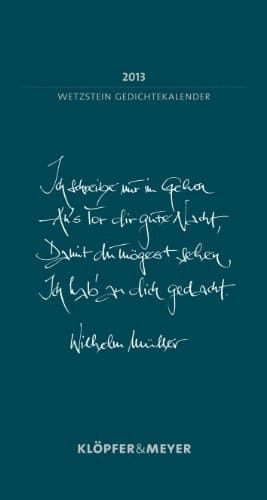 2013
WETZSTEIN GEDICHTEKALENDER
Ich schreibe nur im Gehen
An's Tor dir gute Nacht,
Damit du mögest sehen,
Ich hab' an dich gedacht.
Wilhelm Müller
KLÖPFER&MEYER